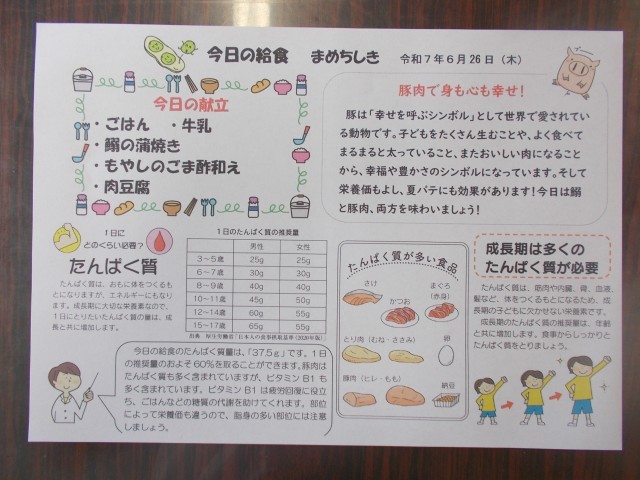 今日の給食　まめちしき　令和７年６月26日（木）
今日の献立
・ごはん　・牛乳
・鰯の蒲焼き
・もやしのごま酢和え
・肉豆腐
豚肉で身も心も幸せ！
豚は「幸せを呼ぶシンボル」として世界で愛されている動物です。子どもをたくさん生むことや、よく食べて
まるまると太っていること、またおいしい肉になること
から、幸福や豊かさのシンボルになっています。そして
栄養価もよし、夏バテにも効果があります！今日は鰯
と豚肉、両方を味わいましょう！
1日に
どのくらい必要？
たんぱく質
たんぱく質は、おもに体をつくるも
とになりますが、エネルギーにもなり
ます。成長期に大切な栄養素なので、
1日にとりたいたんぱく質の量は、成
長と共に増加します。
1日のたんぱく質の推奨量
男性　女性
3～5歳　25g　25g
6～7歳　30g　30g
8～9歳　40g　40g
10～11歳　45g　50g
12～14歳　60g　55g
15～17歳　65g　55g
出典　厚生労働省「日本人の食事摂取基準（2020年版）」
たんぱく質が多い食品
さけ
かつお
まぐろ
（赤身）
とり肉（むね・ささみ）
卵
豚肉（ヒレ・もも）
納豆
成長期は多くの
たんぱく質が必要
たんぱく質は、筋肉や内臓、骨、血液、
髪など、体をつくるもとになるため、成
長期の子どもに欠かせない栄養素です。
成長期のたんぱく質の推奨量は、年齢
と共に増加します。食事からしっかりと
たんぱく質をとりましょう。
今日の給食のたんぱく質量は、「37.5g」です。1日
の推奨量のおよそ60％を取ることができます。豚肉は
たんぱく質も多く含まれていますが、ビタミンB1も
多く含まれています。ビタミンB1は疲労回復に役立
ち、ごはんなどの糖質の代謝を助けてくれます。部位
によって栄養価も違うので、脂身の多い部位には注意
しましょう。